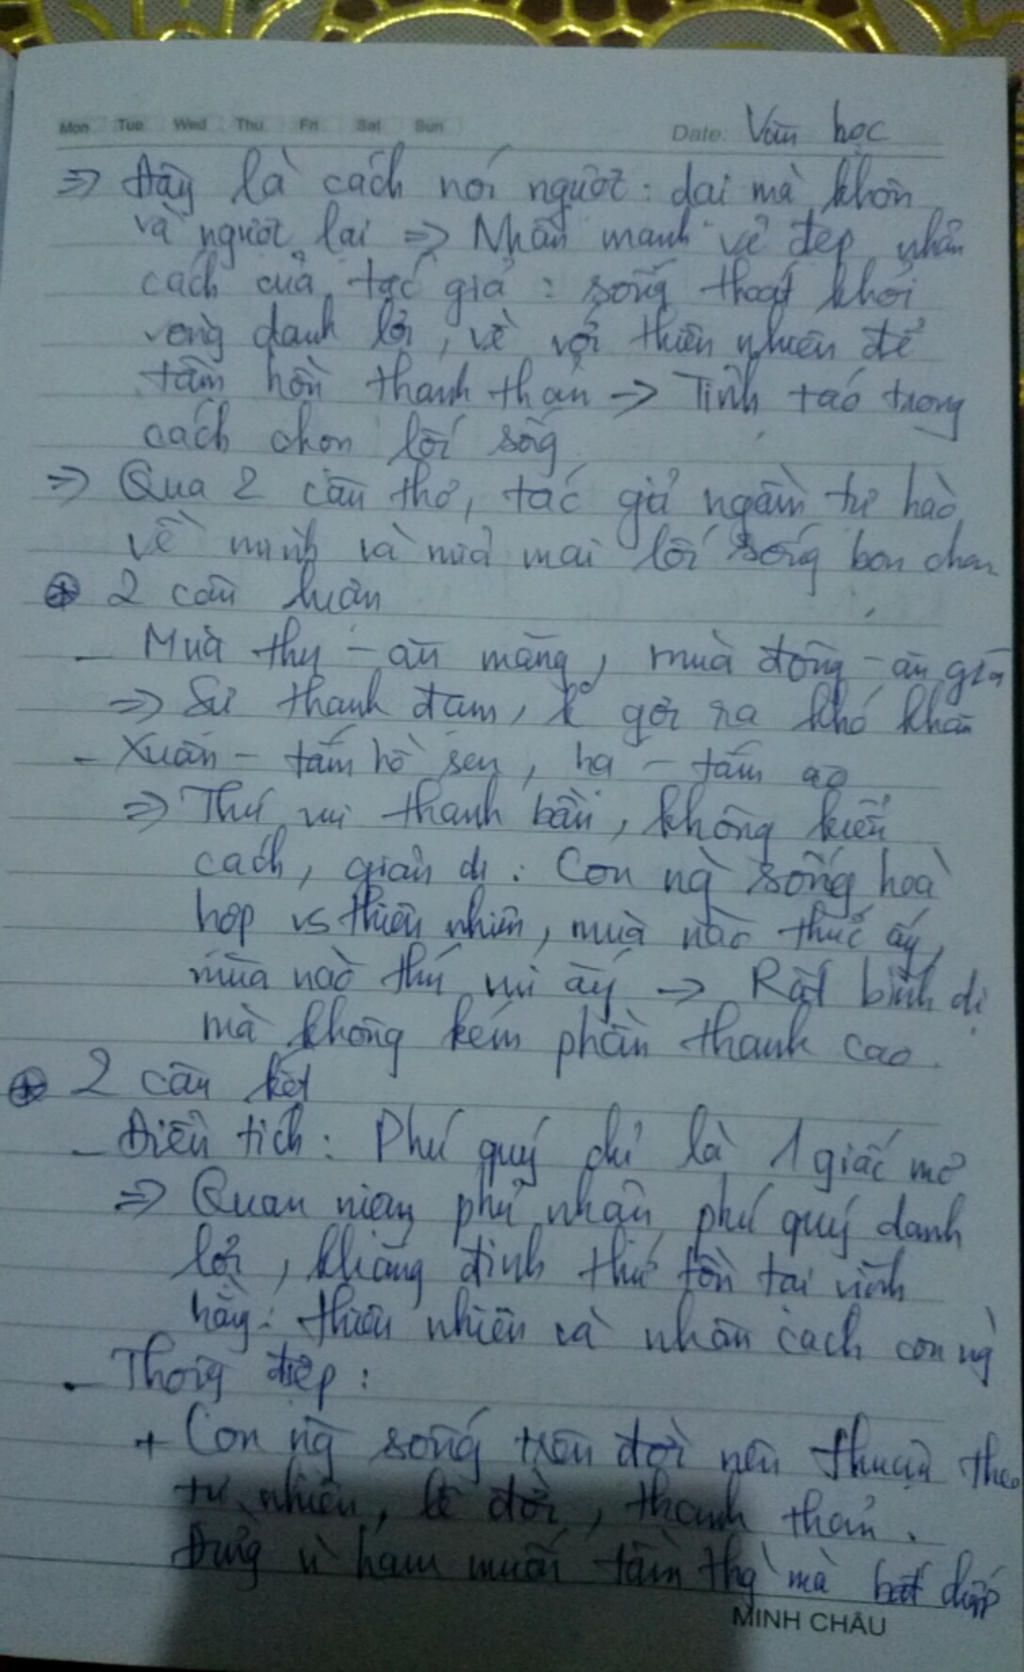 Mon Tue Wed Thu Fri Sat Sun Date: Văn học
=> Đây là cách nói ngược: dại mà khôn
và ngược lại => Nhấn mạnh vẻ đẹp nhân
cách của tác giả: sống thoát khỏi
vòng danh lợi, về với thiên nhiên để
tâm hồn thanh thản -> Tỉnh táo trong
cách chọn lối sống
=> Qua 2 câu thơ, tác giả ngầm tự hào
về mình và mỉa mai lối sống bon chen
⊕ 2 câu luận
- Mùa thu - ăn măng, mùa đông - ăn giá
=> Sự thanh đạm, k gợi ra khó khăn
- Xuân - tắm hồ sen, hạ - tắm ao
=> Thú vui thanh bần, không kiểu
cách, giản dị: Con ng` sống hoà
hợp vs thiên nhiên, mùa nào thức ấy,
mùa nào thú vui ấy -> Rất bình dị
mà không kém phần thanh cao.
⊕ 2 câu kết
- Điển tích: Phú quý chỉ là 1 giấc mơ
=> Quan niệm phủ nhận phú quý danh
lợi, khẳng định thứ tồn tại vĩnh
hằng: thiên nhiên và nhân cách con ng`
- Thông điệp:
+ Con ng` sống trên đời nên thuận theo
tự nhiên, lẽ đời, thanh thản.
Đừng vì ham muốn tầm thg` mà bất chấp
MINH CHÂU